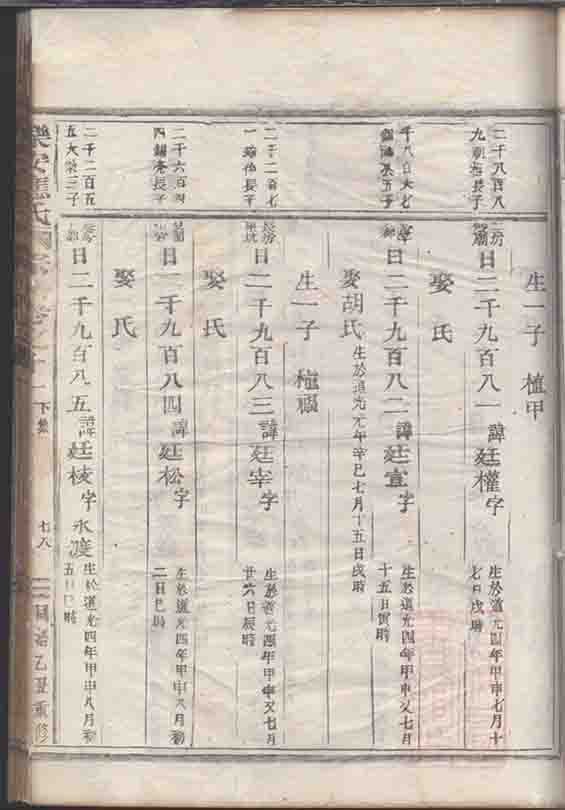 生一子 植甲
二千八百八
九朝
長子
曰二千九百八一 諱廷權字
生於道光四年甲申七月十
七日戌時
娶氏
千八百大七
五子
曰二千九百八二 諱廷宣字
生於道光四年甲申又七月
十五日寅時
娶胡氏 生於道光元年辛巳七月十五日戌時
生一子 植福
二千二百七
一 長子
長房
曰二千九百八三 諱廷宰字
生於道光四年甲申又七月
廿六日辰時
娶氏
二千六百
四 長子
曰二千九百八四 諱廷松字
生於道光四年甲申八月初
二日巳時
娶氏
二千二百五
五大 三子
長房
曰二千九百八五 諱廷棱字永渡
生於道光四年甲申八月初
五日巳時
樂安 氏
下集
七八
同治乙丑重修